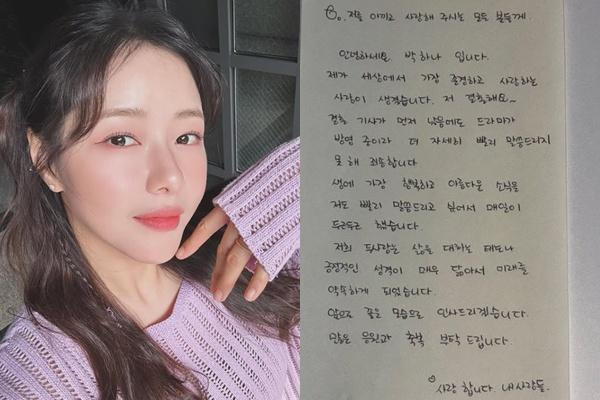 To. 저를 아끼고 사랑해 주시는 모든 분들께.
안녕하세요. 박하나 입니다.
제가 세상에서 가장 존경하고 사랑하는
사람이 생겼습니다. 저 결혼해요~
결혼 기사가 먼저 났음에도 드라마가
방영 중이라 더 자세히 빨리 말씀드리지
못 해 죄송합니다
생에 가장 행복하고 아름다운 소식을
저도 빨리 말씀드리고 싶어서 매일이
두근두근 했습니다.
저희 두사람는 삶을 대하는 태도나
긍정적인 성격이 매우 닮아서 미래를
약속하게 되었습니다.
앞으로 좋은 모습으로 인사드리겠습니다.
많은 응원과 축복 부탁 드립니다.
사랑 합니다. 내사람들.